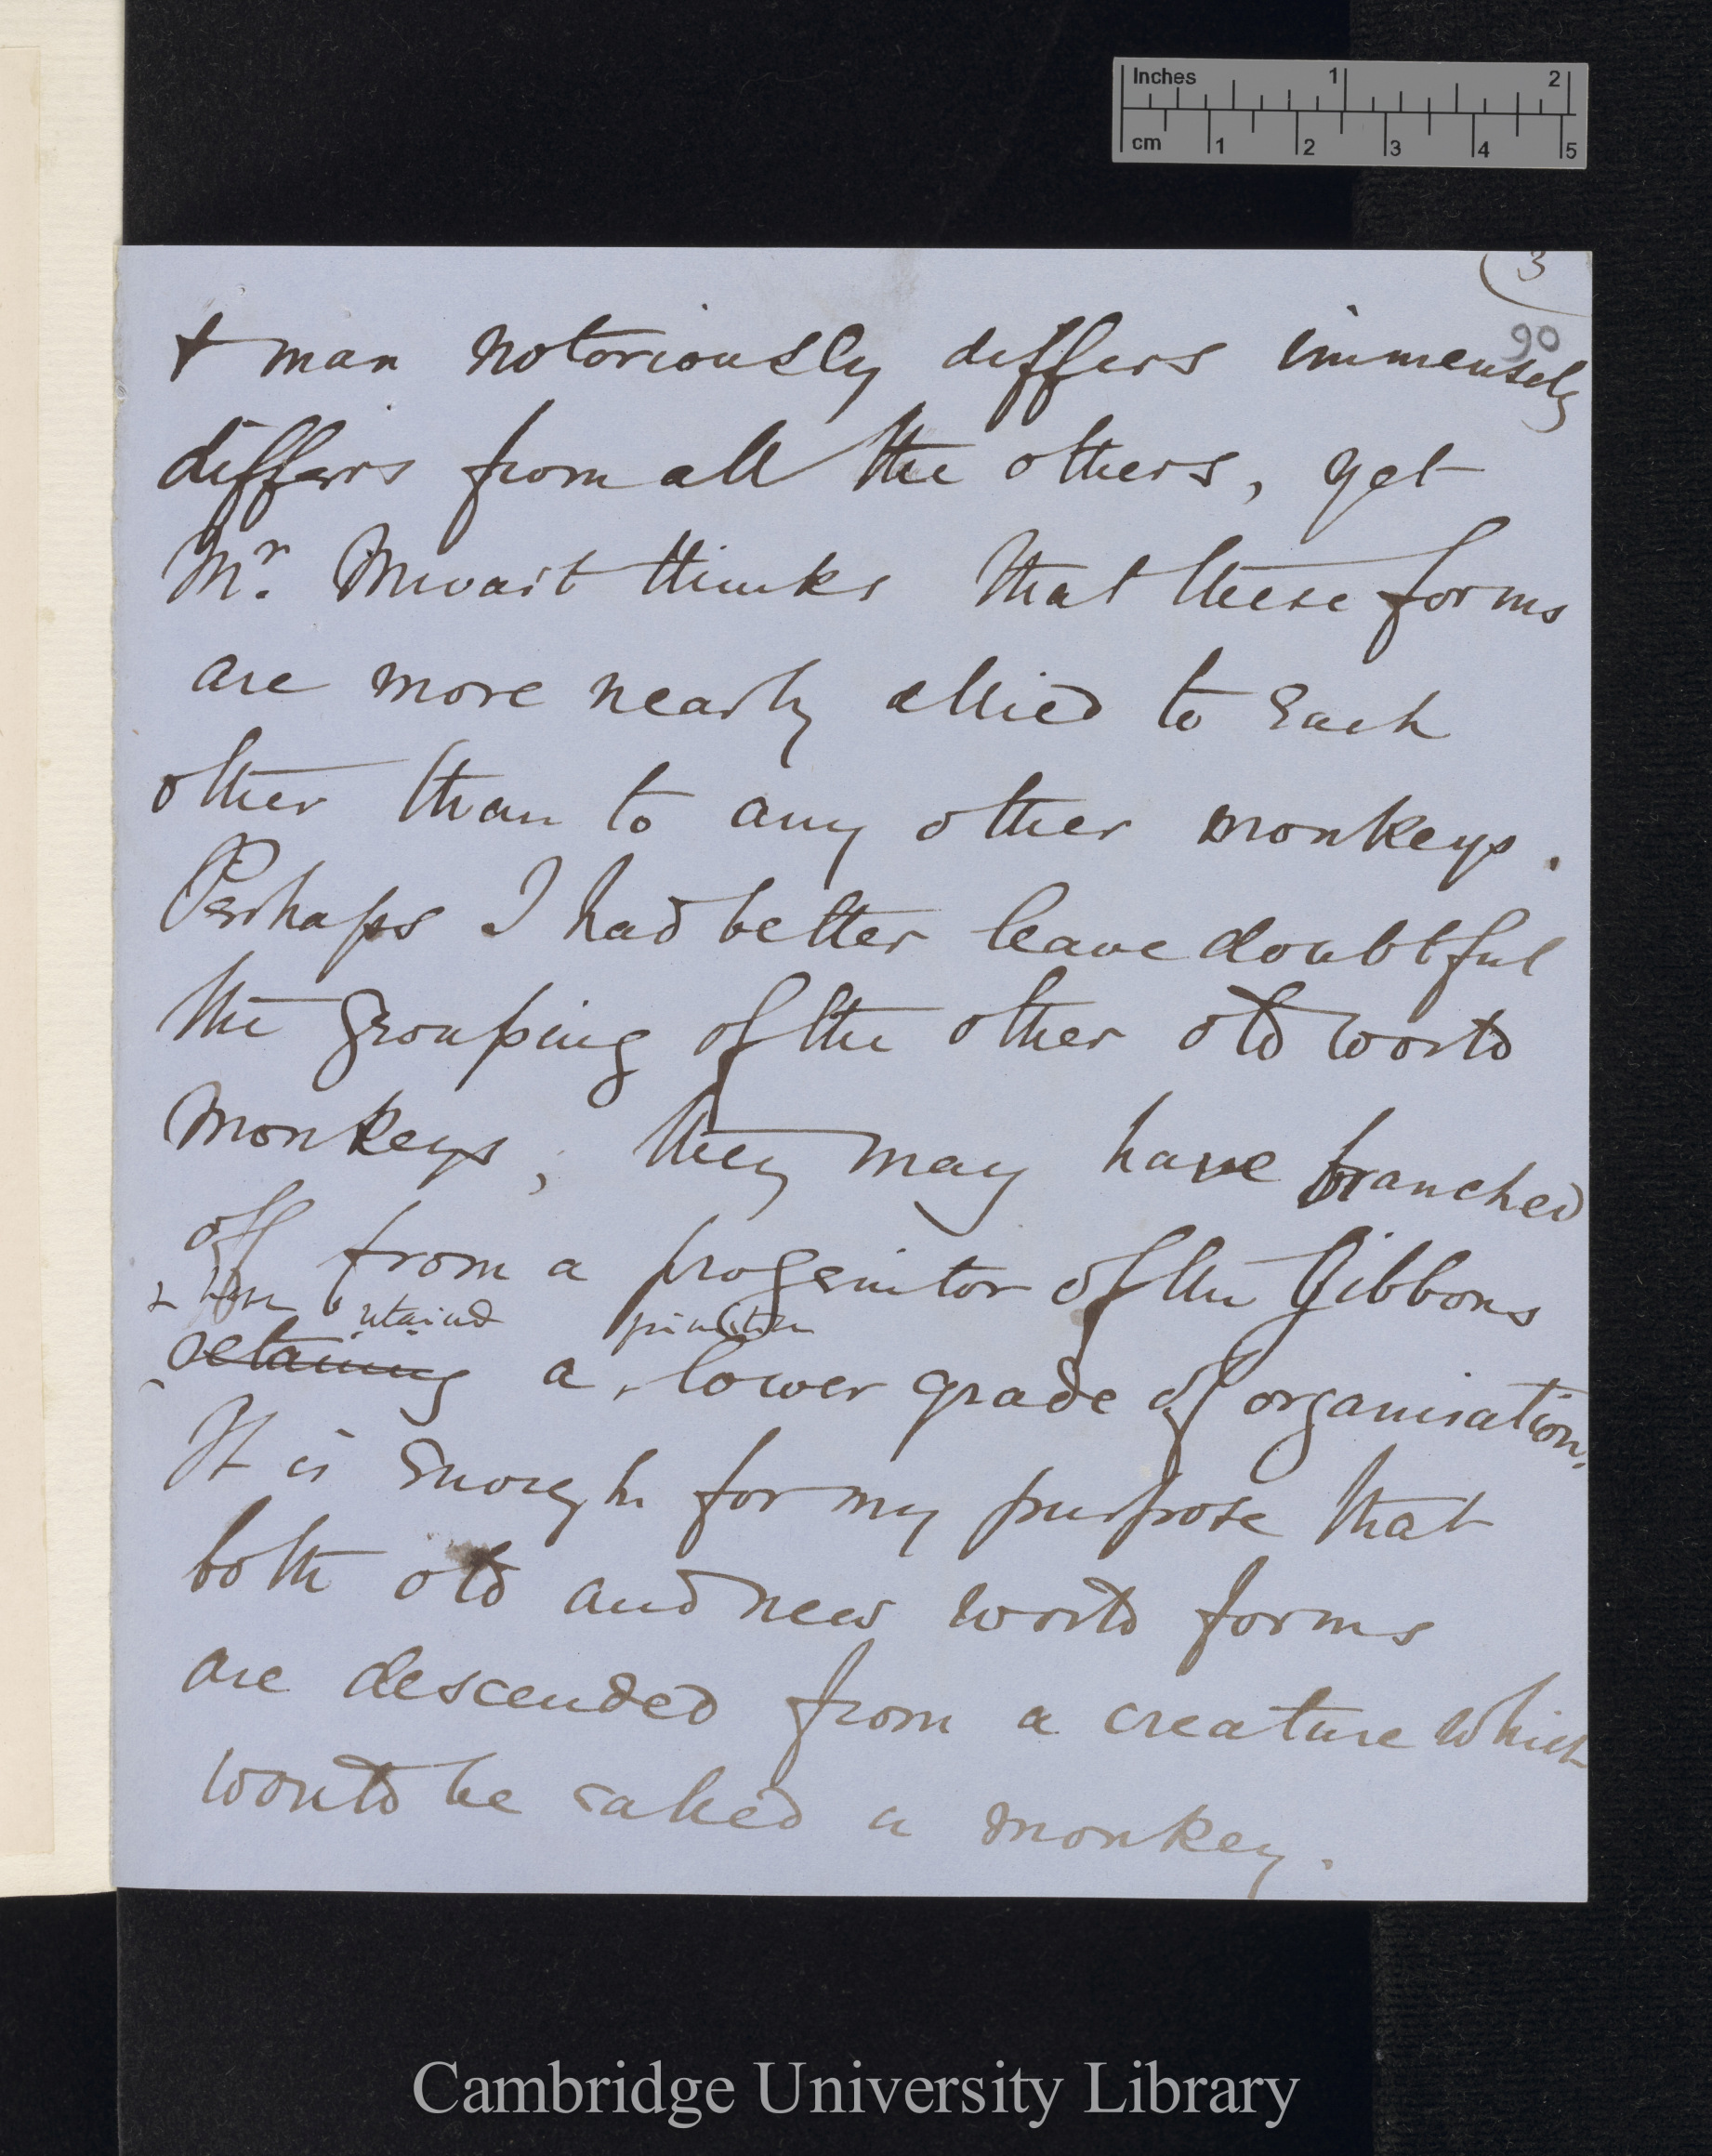 Inches 1 2
cm 1 2 3 4 5
(3
90
& man notoriously differs immensely
differs from all the others, yet
Mr. Mivart thinks that these forms
are more nearly allied to each
other than to any other monkeys.
Perhaps I had better leave doubtful
the grouping of the other old world
monkeys; they may have branched
off from a progenitor of the Gibbons
& have retained primitive
retaining a lower grade of organisation.
It is enough for my purpose that
both old and new world forms
are descended from a creature which
would be called a monkey.
Cambridge University Library